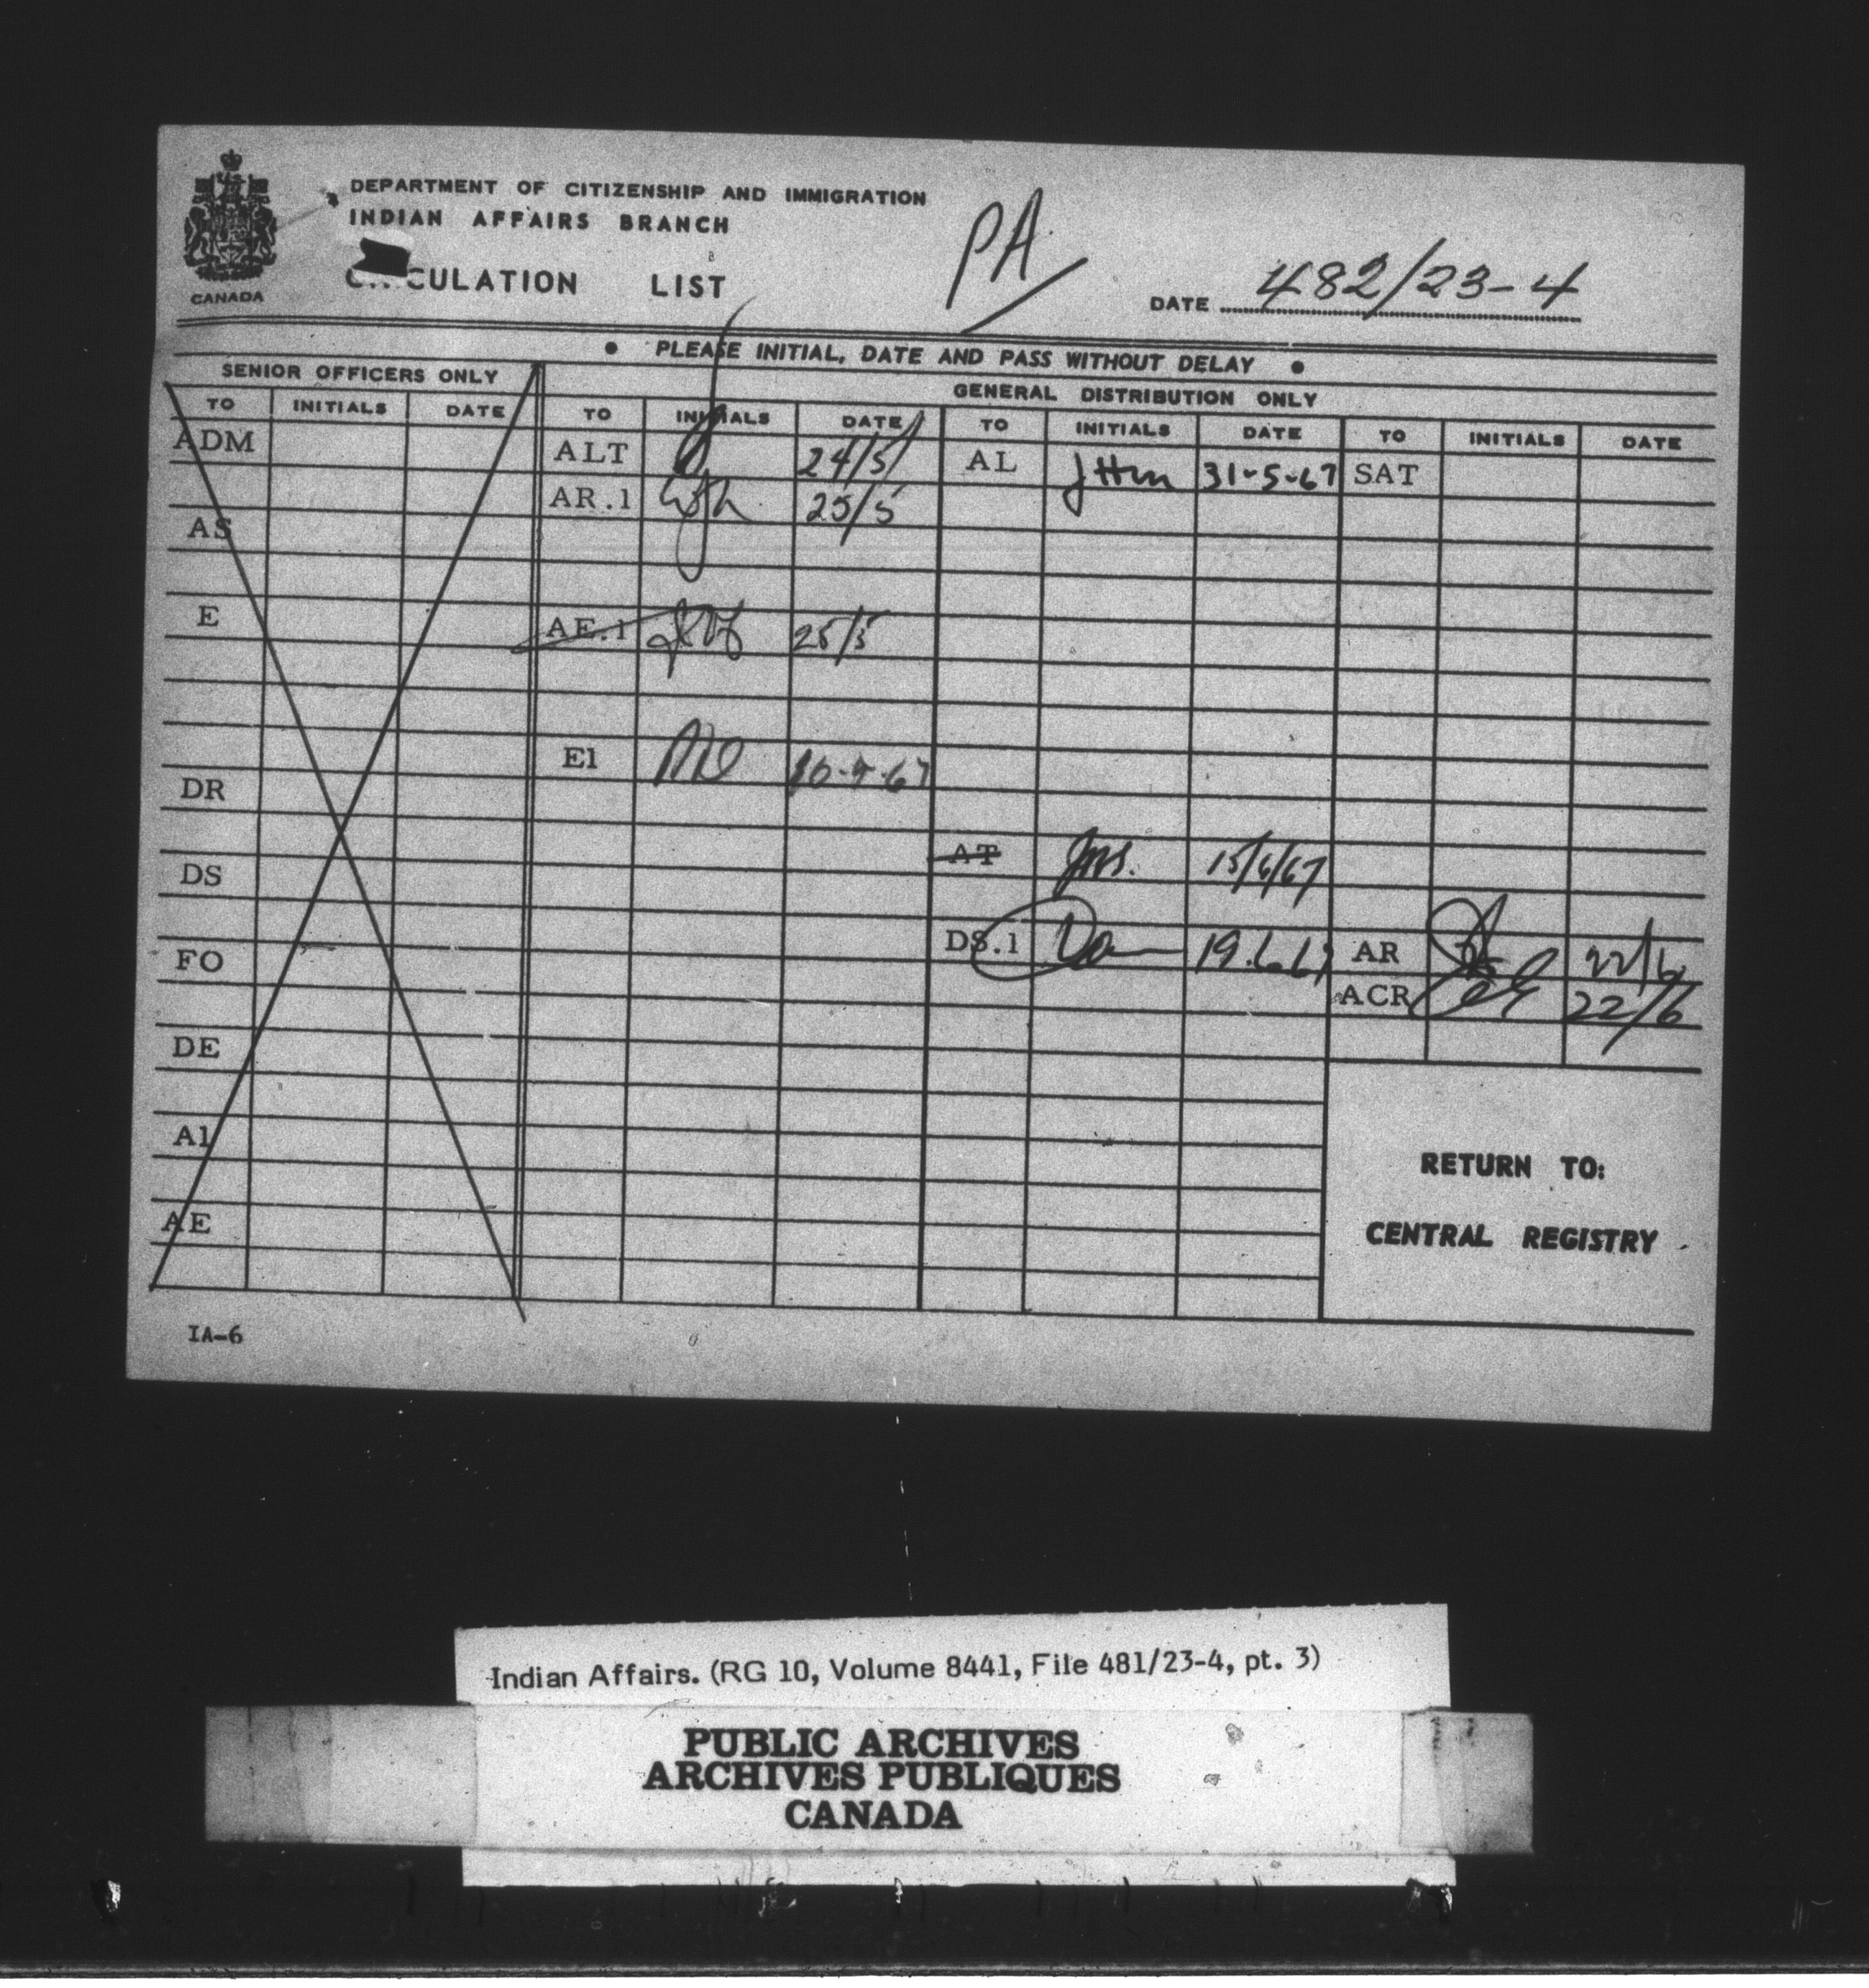 DEPARTMENT OF CITIZENSHIP AND IMMIGRATION
INDIAN AFFAIRS BRANCH
CULATION LIST
CANADA
PA
DATE 482/23-4
• PLEASE INITIAL, DATE AND PASS WITHOUT DELAY •
SENIOR OFFICERS ONLY
GENERAL DISTRIBUTION ONLY
TO INITIALS DATE TO INITIALS DATE TO INITIALS DATE TO INITIALS DATE
ADM ALT 24/5 AL 31-5-67 SAT
AR.1 25/5
AS
E AE.1 25/5
E1
DR
AT 15/6/67
DS
DS.1 19.6.67 AR 22/6
FO
ACR 22/6
DE
A1
AE
RETURN TO:
CENTRAL REGISTRY
IA-6
Indian Affairs. (RG 10, Volume 8441, File 481/23-4, pt. 3)
PUBLIC ARCHIVES
ARCHIVES PUBLIQUES
CANADA